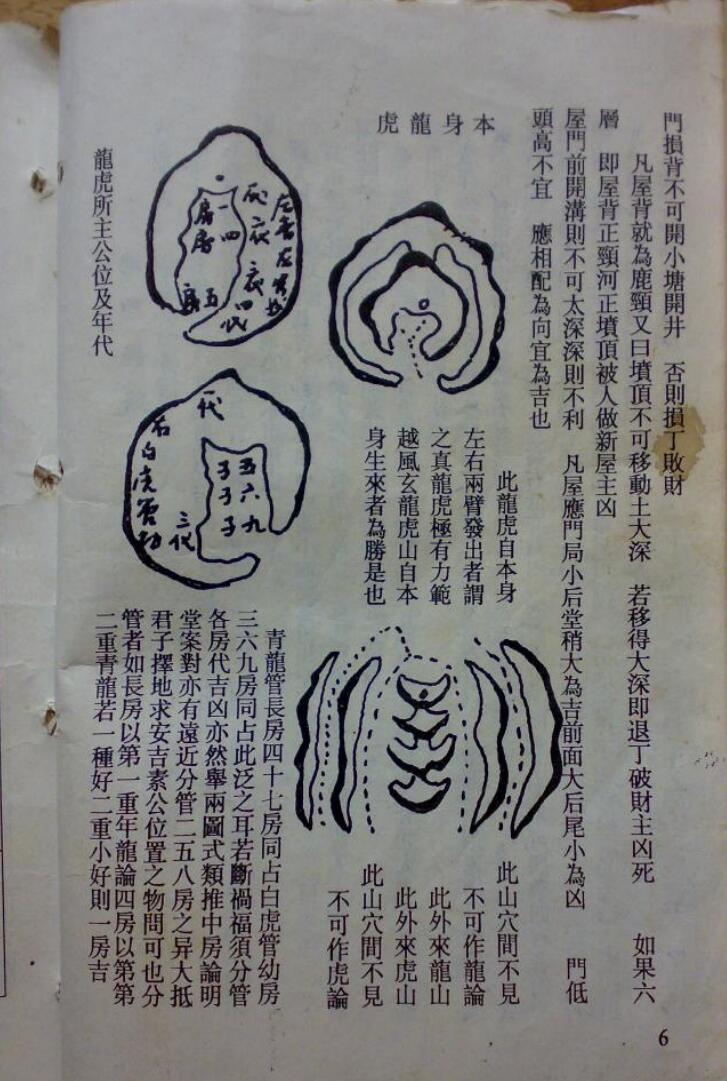 門損背不可開小塘開井　否則損丁敗財
凡屋背就為鹿頸又曰墳頂不可移動土大深　若移得大深即退丁破財主凶死　如果六
層　即屋背正頸河正墳頂被人做新屋主凶
屋門前開溝則不可太深深則不利　凡屋應門局小后堂稍大為吉前面大后尾小為凶　門低
頭高不宜　應相配為向宜為吉也
本身龍虎
此龍虎自本身
左右兩臂發出者謂
之真龍虎極有力範
越風玄龍虎山自本
身生來者為勝是也
此山穴間不見
不可作龍論
此外來龍山
此外來虎山
此山穴間不見
不可作虎論
四代
一四
房房
五
房
一代
右白虎管
三代
五六九
子子子
龍虎所主公位及年代
青龍管長房四十七房同占白虎管幼房
三六九房同占此泛之耳若斷禍福須分管
各房代吉凶亦然舉兩圖式類推中房論明
堂案對亦有遠近分管二五八房之异大抵
君子擇地求安吉素公位置之物問可也分
管者如長房以第一重年龍論四房以第第
二重青龍若一種好二重小好則一房吉
6